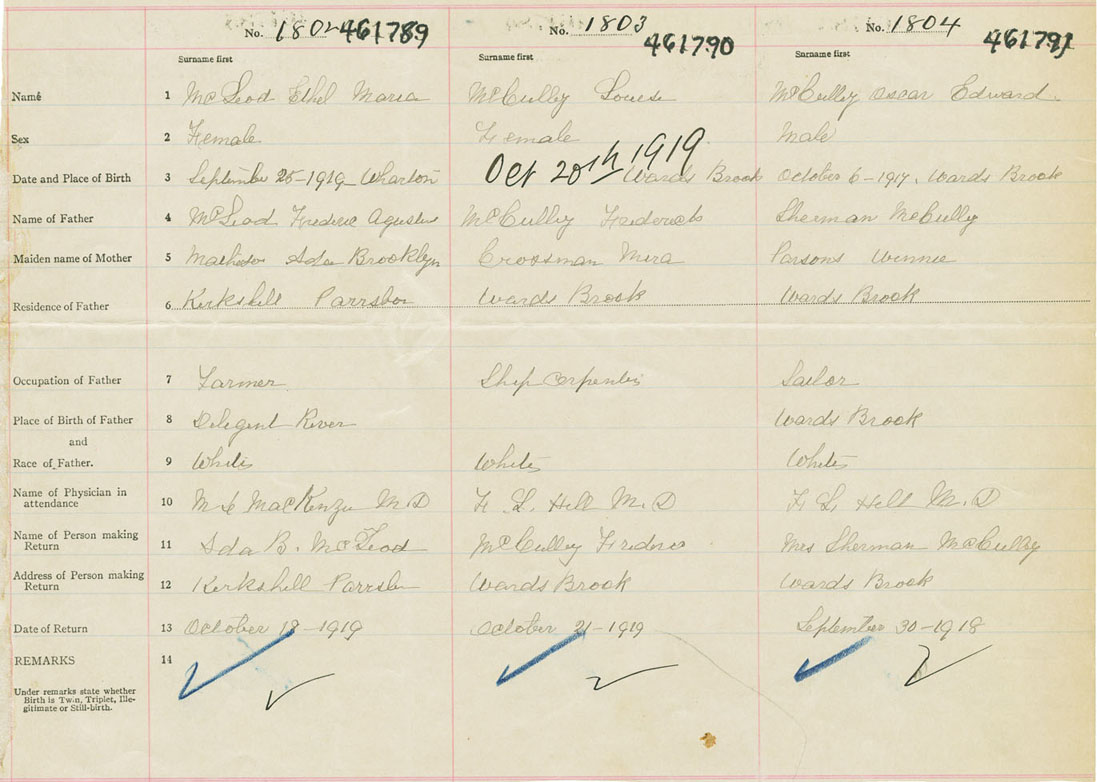 No. 1802 461789 No. 1803 461790 No. 1804 461791
Surname first Surname first Surname first
Name 1 McLeod Ethel Maria McCulley Louise McCulley Oscar Edward
Sex 2 Female Female Male
Date and Place of Birth 3 September 25-1919 Wharton Oct 20th 1919 Wards Brook October 6-1917. Wards Brook
Name of Father 4 McLeod Frederic McCulley Frederick Sherman McCully
Maiden name of Mother 5 Ada Brooklyn Crossman Mira Parsons Winnie
Residence of Father 6 Kirkshill Parrsboro Wards Brook Wards Brook
Occupation of Father 7 Farmer Ship Carpenter Sailor
Place of Birth of Father 8 Deligent River Wards Brook
and
Race of Father. 9 White White White
Name of Physician in
attendance 10 MacKenzie M.D F. L. Hill M.D F. L. Hill M.D
Name of Person making
Return 11 Ada B. McLeod McCulley Frederic Mrs Sherman McCulley
Address of Person making
Return 12 Kirkshill Parrsboro Wards Brook Wards Brook
Date of Return 13 October 18-1919 October 21-1919 September 30-1918
REMARKS 14
Under remarks state whether
Birth is Twin, Triplet, Ille-
gitimate or Still-birth.